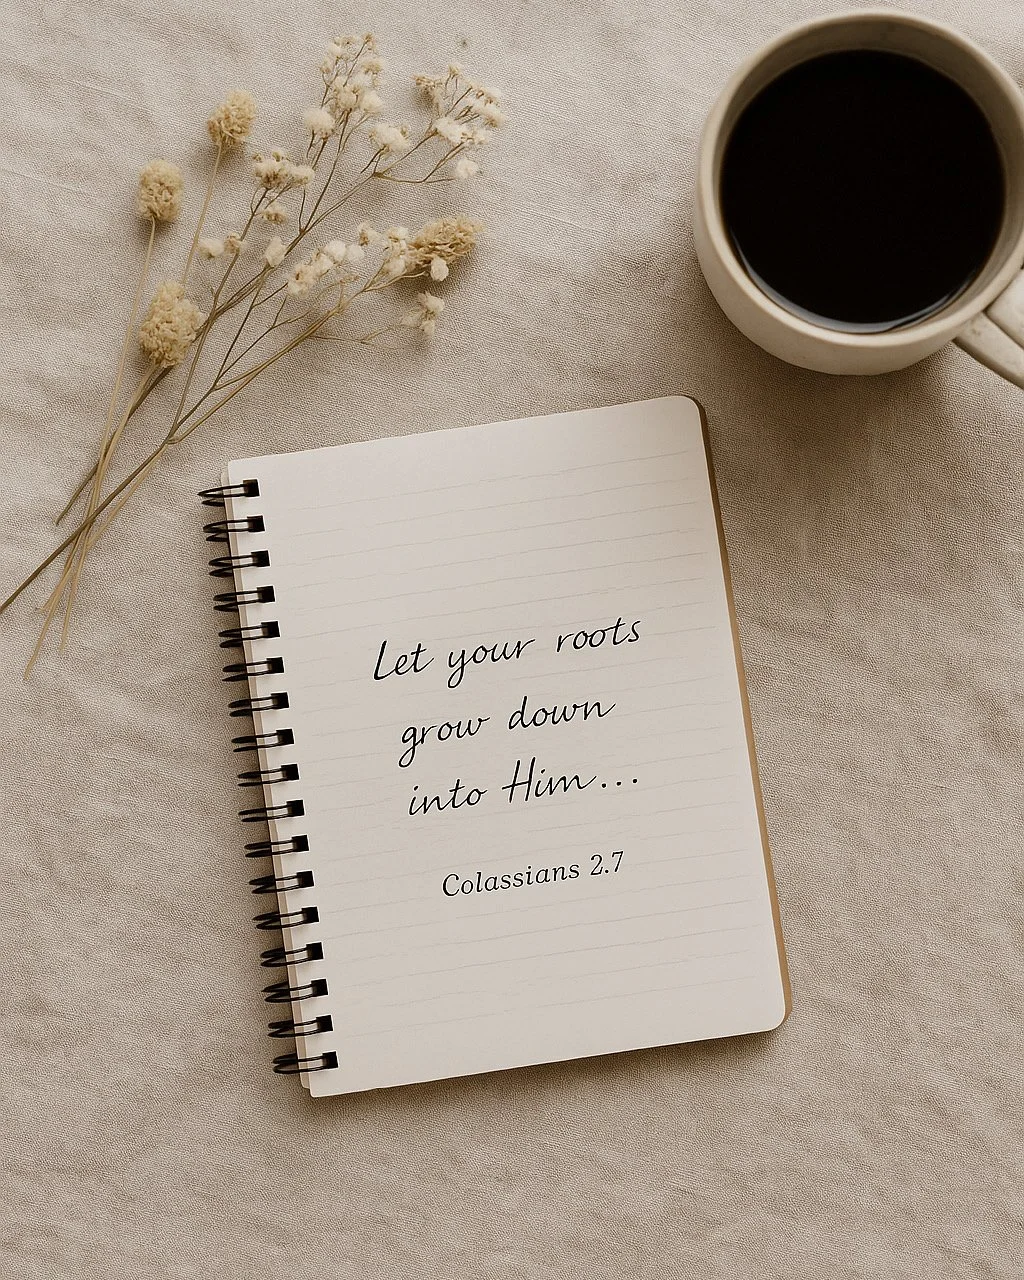 Let your roots
grow down
into Him...
Colassians 2.7